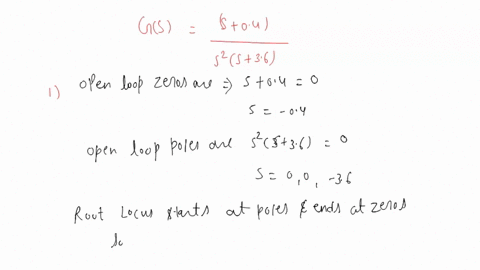 G(s) = (s+0.4)
s²(s+3.6)
1) open loop zeros are ⇒ s+0.4 = 0
s = -0.4
open loop poles are s²(s+3.6) = 0
s = 0, 0, -3.6
Root Locus starts at poles & ends at zeros